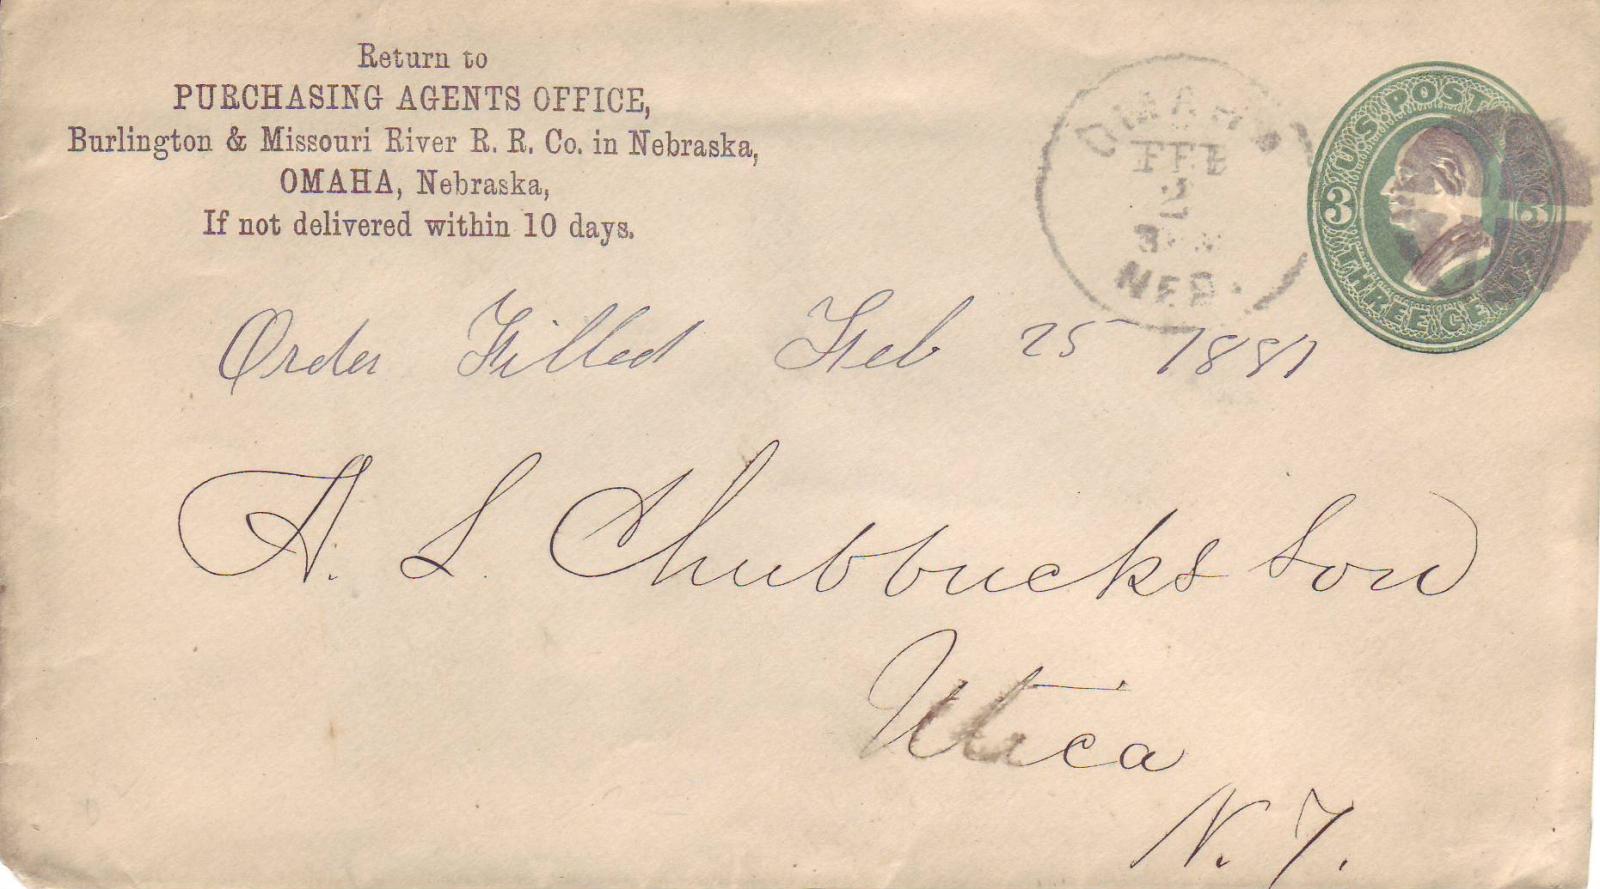 Return to
PURCHASING AGENTS OFFICE,
Burlington & Missouri River R. R. Co. in Nebraska,
OMAHA, Nebraska,
If not delivered within 10 days.
OMAHA
FEB
2
NEB.
U.S. POSTAGE
3 3
THREE CENTS
Order Filled Feb 25 1881
A. S. Chubbucks Son
Utica
N. Y.